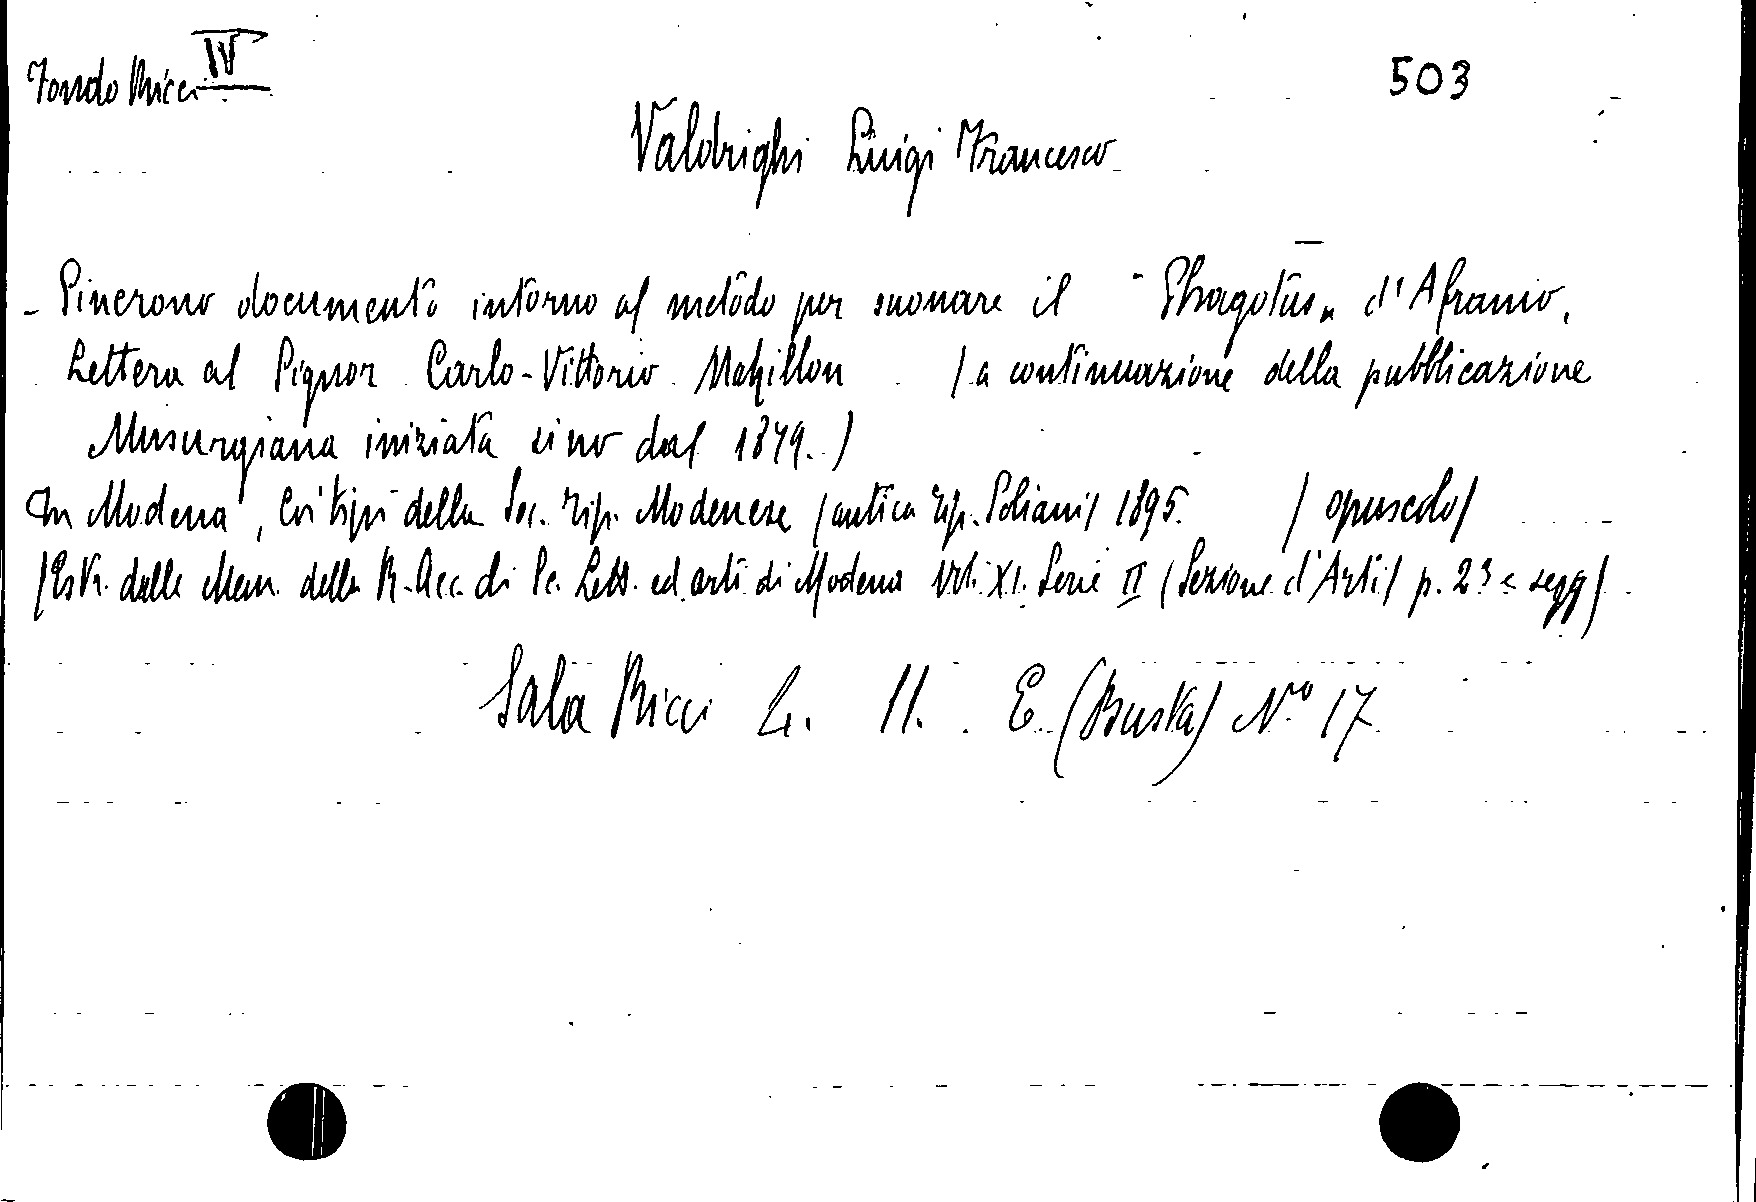 Fondo Ricci IV
503
Valdrighi Luigi Francesco
- Sincrono documento intorno al metodo per suonare il "Phagotus" d'Afranio.
Lettera al Signor Carlo-Vittorio Mahillon (a continuazione della pubblicazione
Musurgiana iniziata sino dal 1879.)
In Modena, Coi tipi della Soc. tip. Modenese (antica tip. Soliani) 1895. (opuscolo)
(Estr. dalle Mem. della R. Acc. di Sc. Lett. ed arti di Modena Vol. XI. Serie II (Sezione d'Arti) p. 23 e segg)
Sala Ricci L. 11. E (Busta) N.o 17